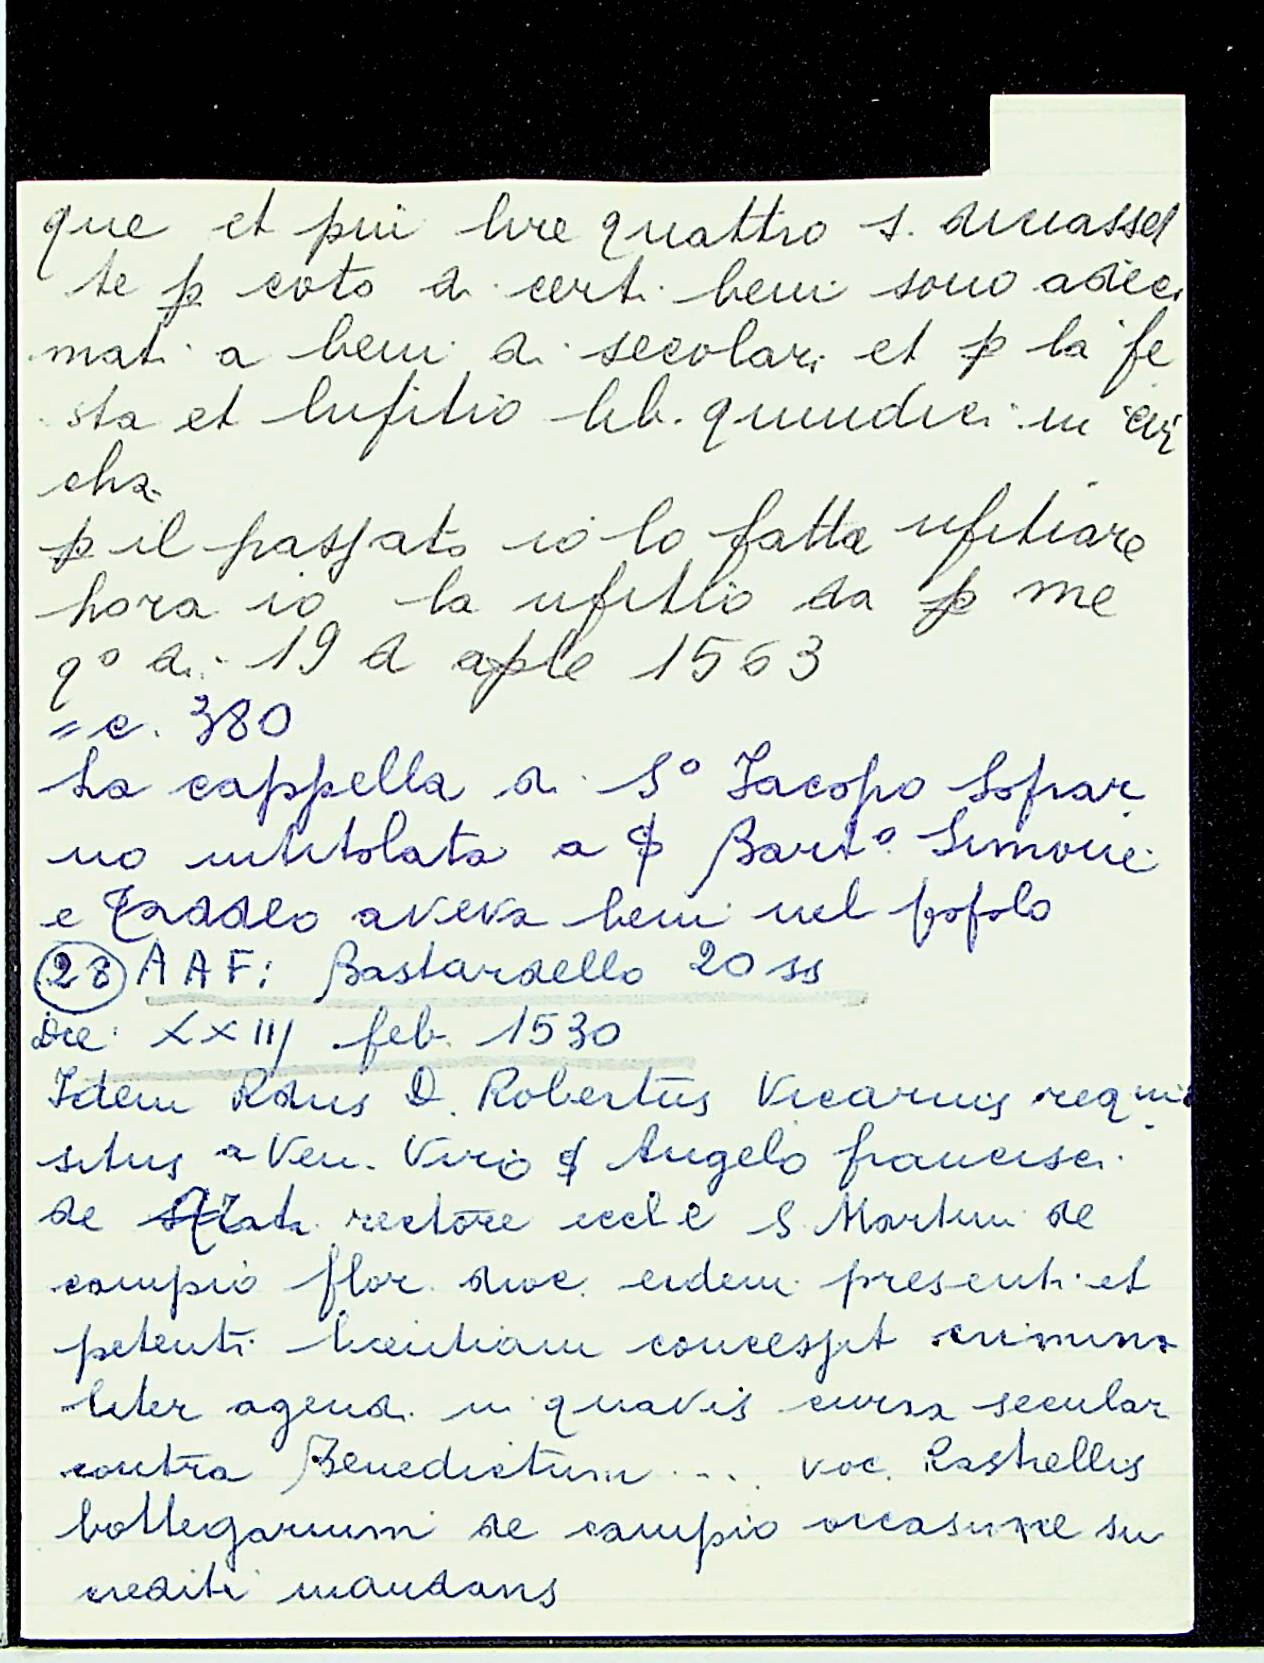 que et piu lire quattro s. diciasset
te p coto di certi beni sono adeci
mati a beni di secolari et p la fe
sta et lufitio lib. quindici in cir
cha
p il passato io lo fatta ufitiare
hora io la ufitio da p me
qº di 19 d aple 1563
= c. 380
La cappella di Sº Jacopo Sopar
no intitolata a S Bartº Simone
e Taddeo aveva beni nel popolo
28 AAF: Bastardello 20 ss
Die XXIII feb. 1530
Idem Rdus D. Robertus Vicarius requi
situs a Ven. Viro S Angelo francisci
de rectore eccl e S Martini de
campio flor. dioc. eidem presenti et
petenti licentiam concessit crimina
liter agendi in quavis curia secular
contra Benedictum ... voc. Rastrellis
bottegarium de campio occasione sui
crediti mandans